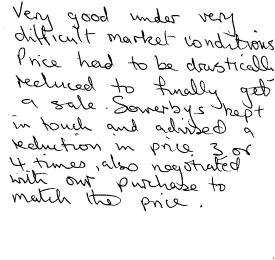 Very good under very
difficult market conditions
Price had to be drastically
reduced to finally get
a sale. Sowerbys kept
in touch and advised a
reduction in price 3 or
4 times, also negotiated
with our purchase to
match the price.